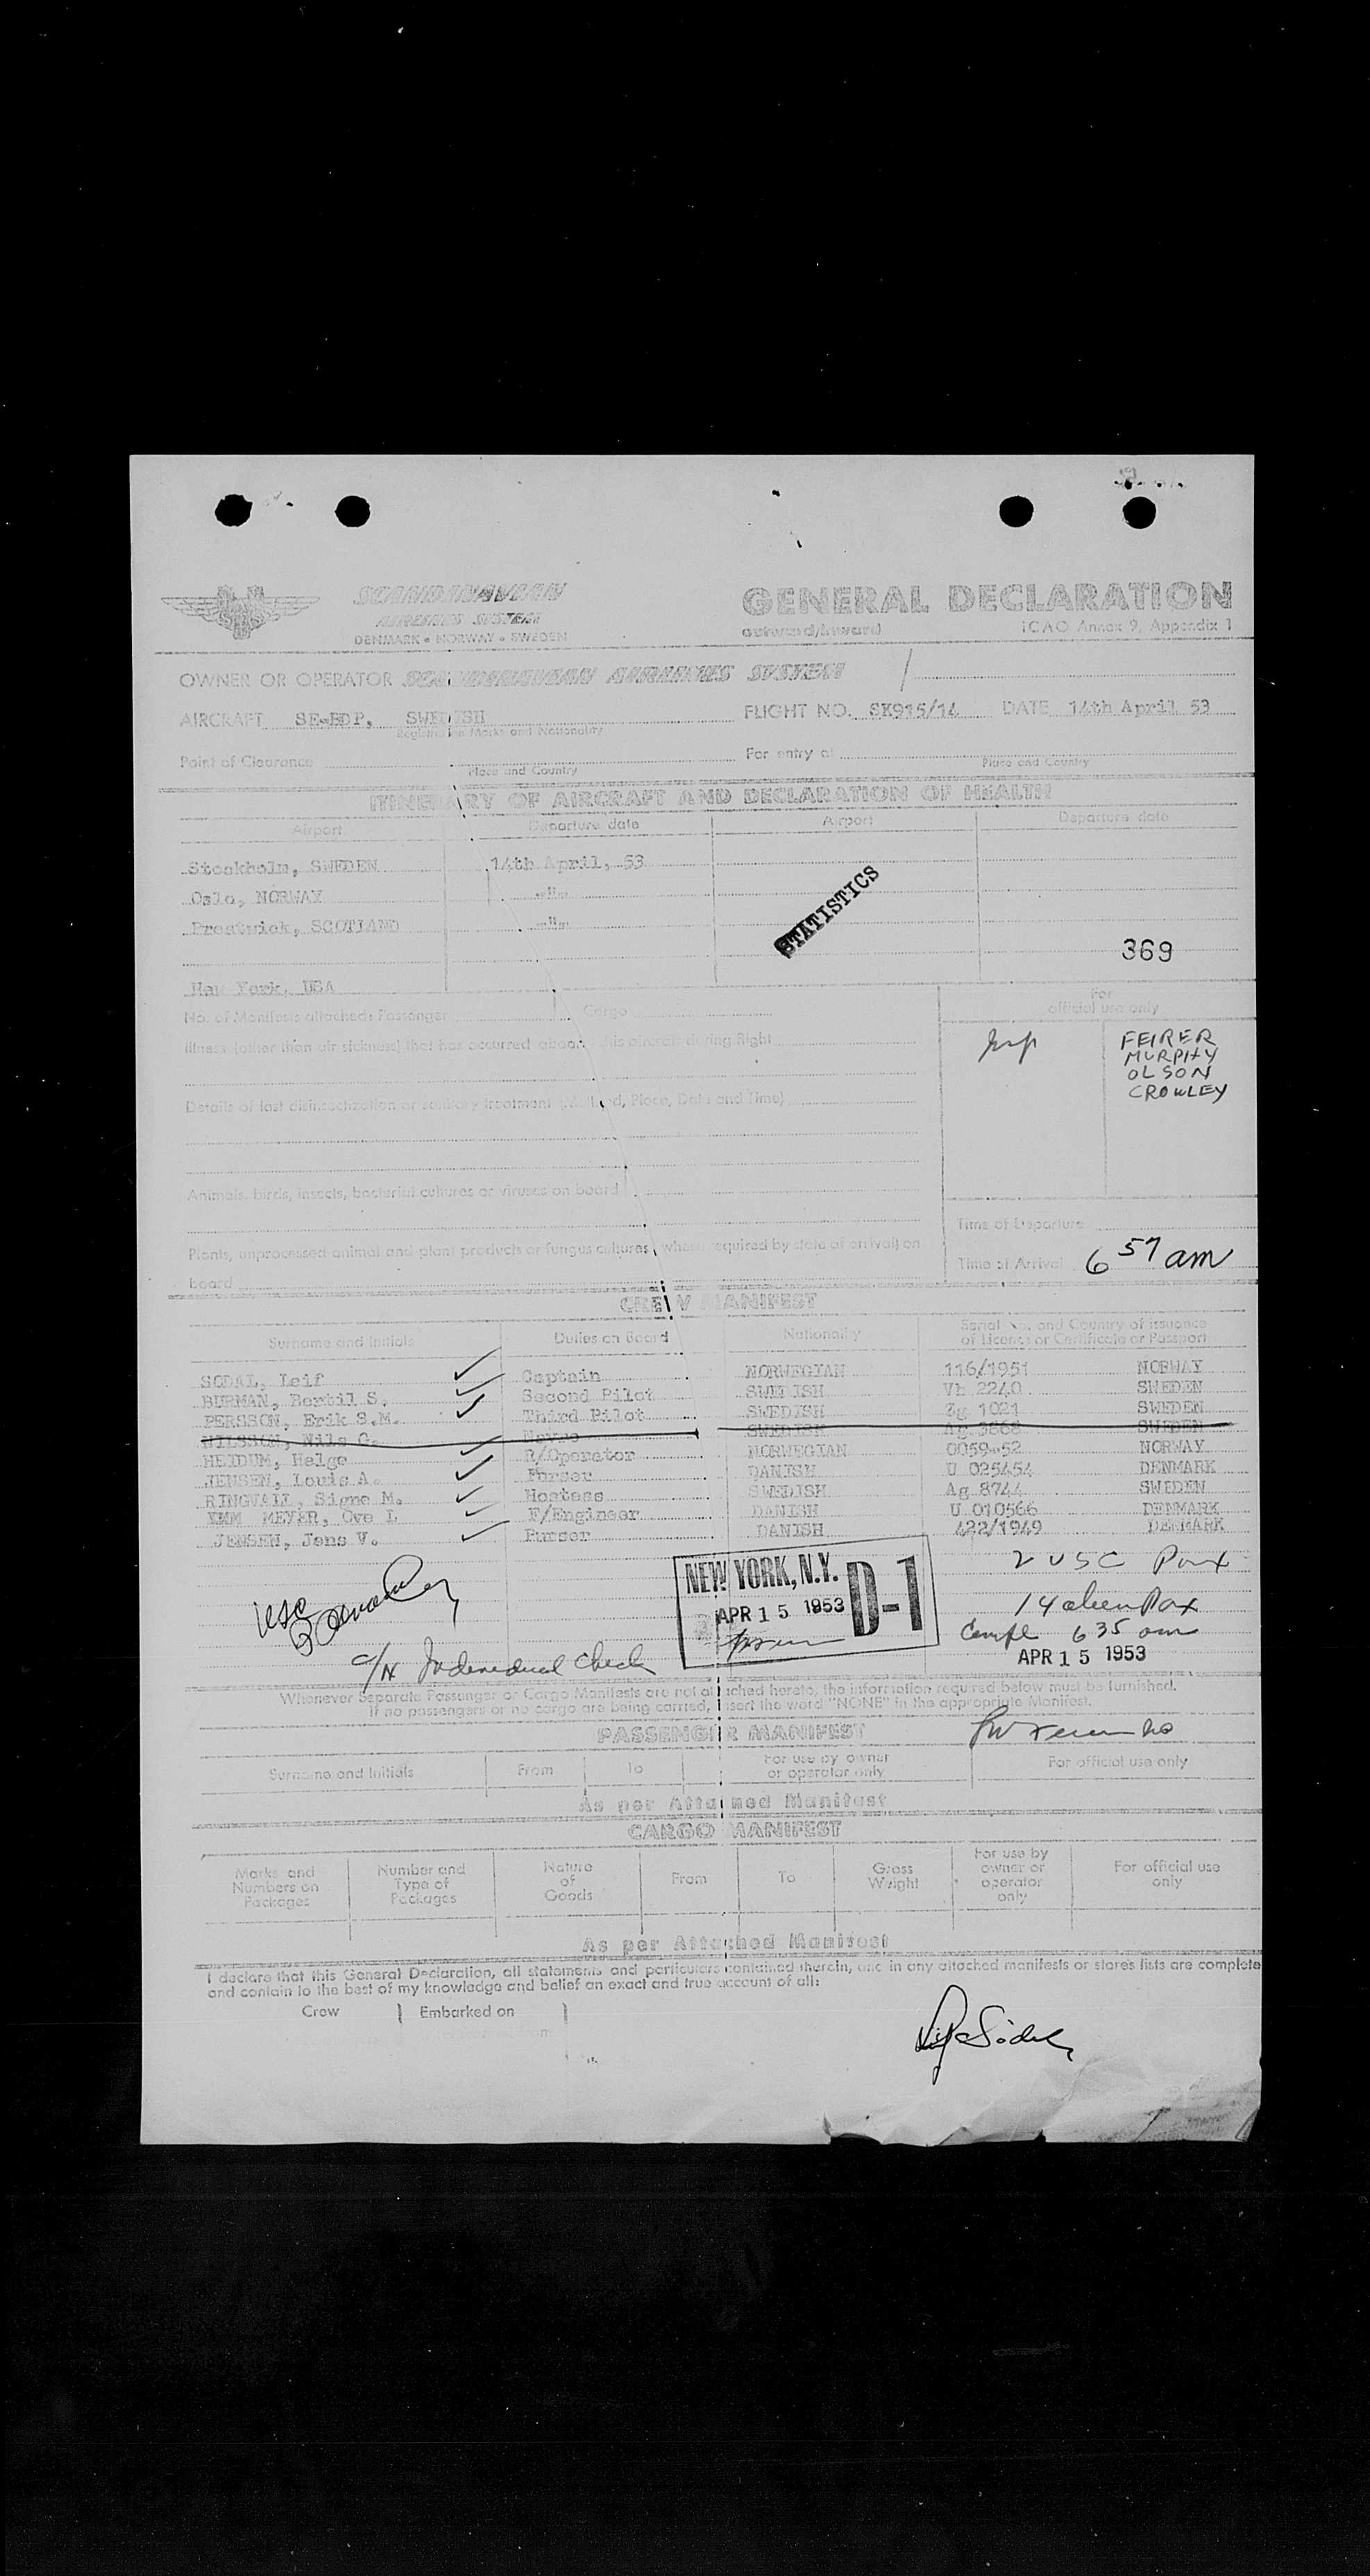 SCANDINAVIAN
AIRLINES SYSTEM
DENMARK • NORWAY • SWEDEN
GENERAL DECLARATION
outward/inward
ICAO Annex 9, Appendix 1
OWNER OR OPERATOR SCANDINAVIAN AIRLINES SYSTEM
AIRCRAFT SE-BDP, SWEDISH FLIGHT NO. SK915/14 DATE 14th April 53
Registration Marks and Nationality
Point of Clearance For entry at
Place and Country Place and Country
ITINERARY OF AIRCRAFT AND DECLARATION OF HEALTH
Airport Departure date Airport Departure date
Stockholm, SWEDEN 14th April, 53
Oslo, NORWAY -"-
Prestwick, SCOTLAND -"-
STATISTICS
369
New York, USA
No. of Manifests attached: Passenger Cargo
For
official use only
Illness (other than air sickness) that has occurred aboard this aircraft during flight
FEIRER
MURPHY
OLSON
CROWLEY
Details of last disinsectization or sanitary treatment (Method, Place, Date and Time)
Animals, birds, insects, bacterial cultures or viruses on board
Time of Departure
Plants, unprocessed animal and plant products or fungus cultures (when required by state of arrival) on
board
Time of Arrival 6 57 am
CREW MANIFEST
Surname and Initials Duties on Board Nationality Serial No. and Country of issuance
of License or Certificate or Passport
SODAL, Leif Captain NORWEGIAN 116/1951 NORWAY
BURMAN, Bertil S. Second Pilot SWEDISH Vb 2240 SWEDEN
PERSSON, Erik S.M. Third Pilot SWEDISH Zg 1021 SWEDEN
NILSSON, Nils G. Navro SWEDISH Ag 3868 SWEDEN
HEIDUM, Helge R/Operator NORWEGIAN 0059-52 NORWAY
JENSEN, Louis A. Purser DANISH U 025454 DENMARK
RINGVALL, Signe M. Hostess SWEDISH Ag 8744 SWEDEN
MEYER, Ove L F/Engineer DANISH U 010566 DENMARK
JENSEN, Jens V. Purser DANISH 422/1949 DENMARK
2 USC Pax
NEW YORK, N.Y.
APR 15 1953
D-1
14 alien Pax
Compl 6 35 am
APR 15 1953
Individual check
Whenever Separate Passenger or Cargo Manifests are not attached hereto, the information required below must be furnished.
If no passengers or no cargo are being carried, insert the word "NONE" in the appropriate Manifest.
PASSENGER MANIFEST
Surname and Initials From To For use by owner
or operator only For official use only
As per Attached Manifest
CARGO MANIFEST
Marks and
Numbers on
Packages
Number and
Type of
Packages
Nature
of
Goods
From To Gross
Weight
For use by
owner or
operator
only
For official use
only
As per Attached Manifest
I declare that this General Declaration, all statements and particulars contained therein, and in any attached manifests or stores lists are complete
and contain to the best of my knowledge and belief an exact and true account of all:
Crew Embarked on